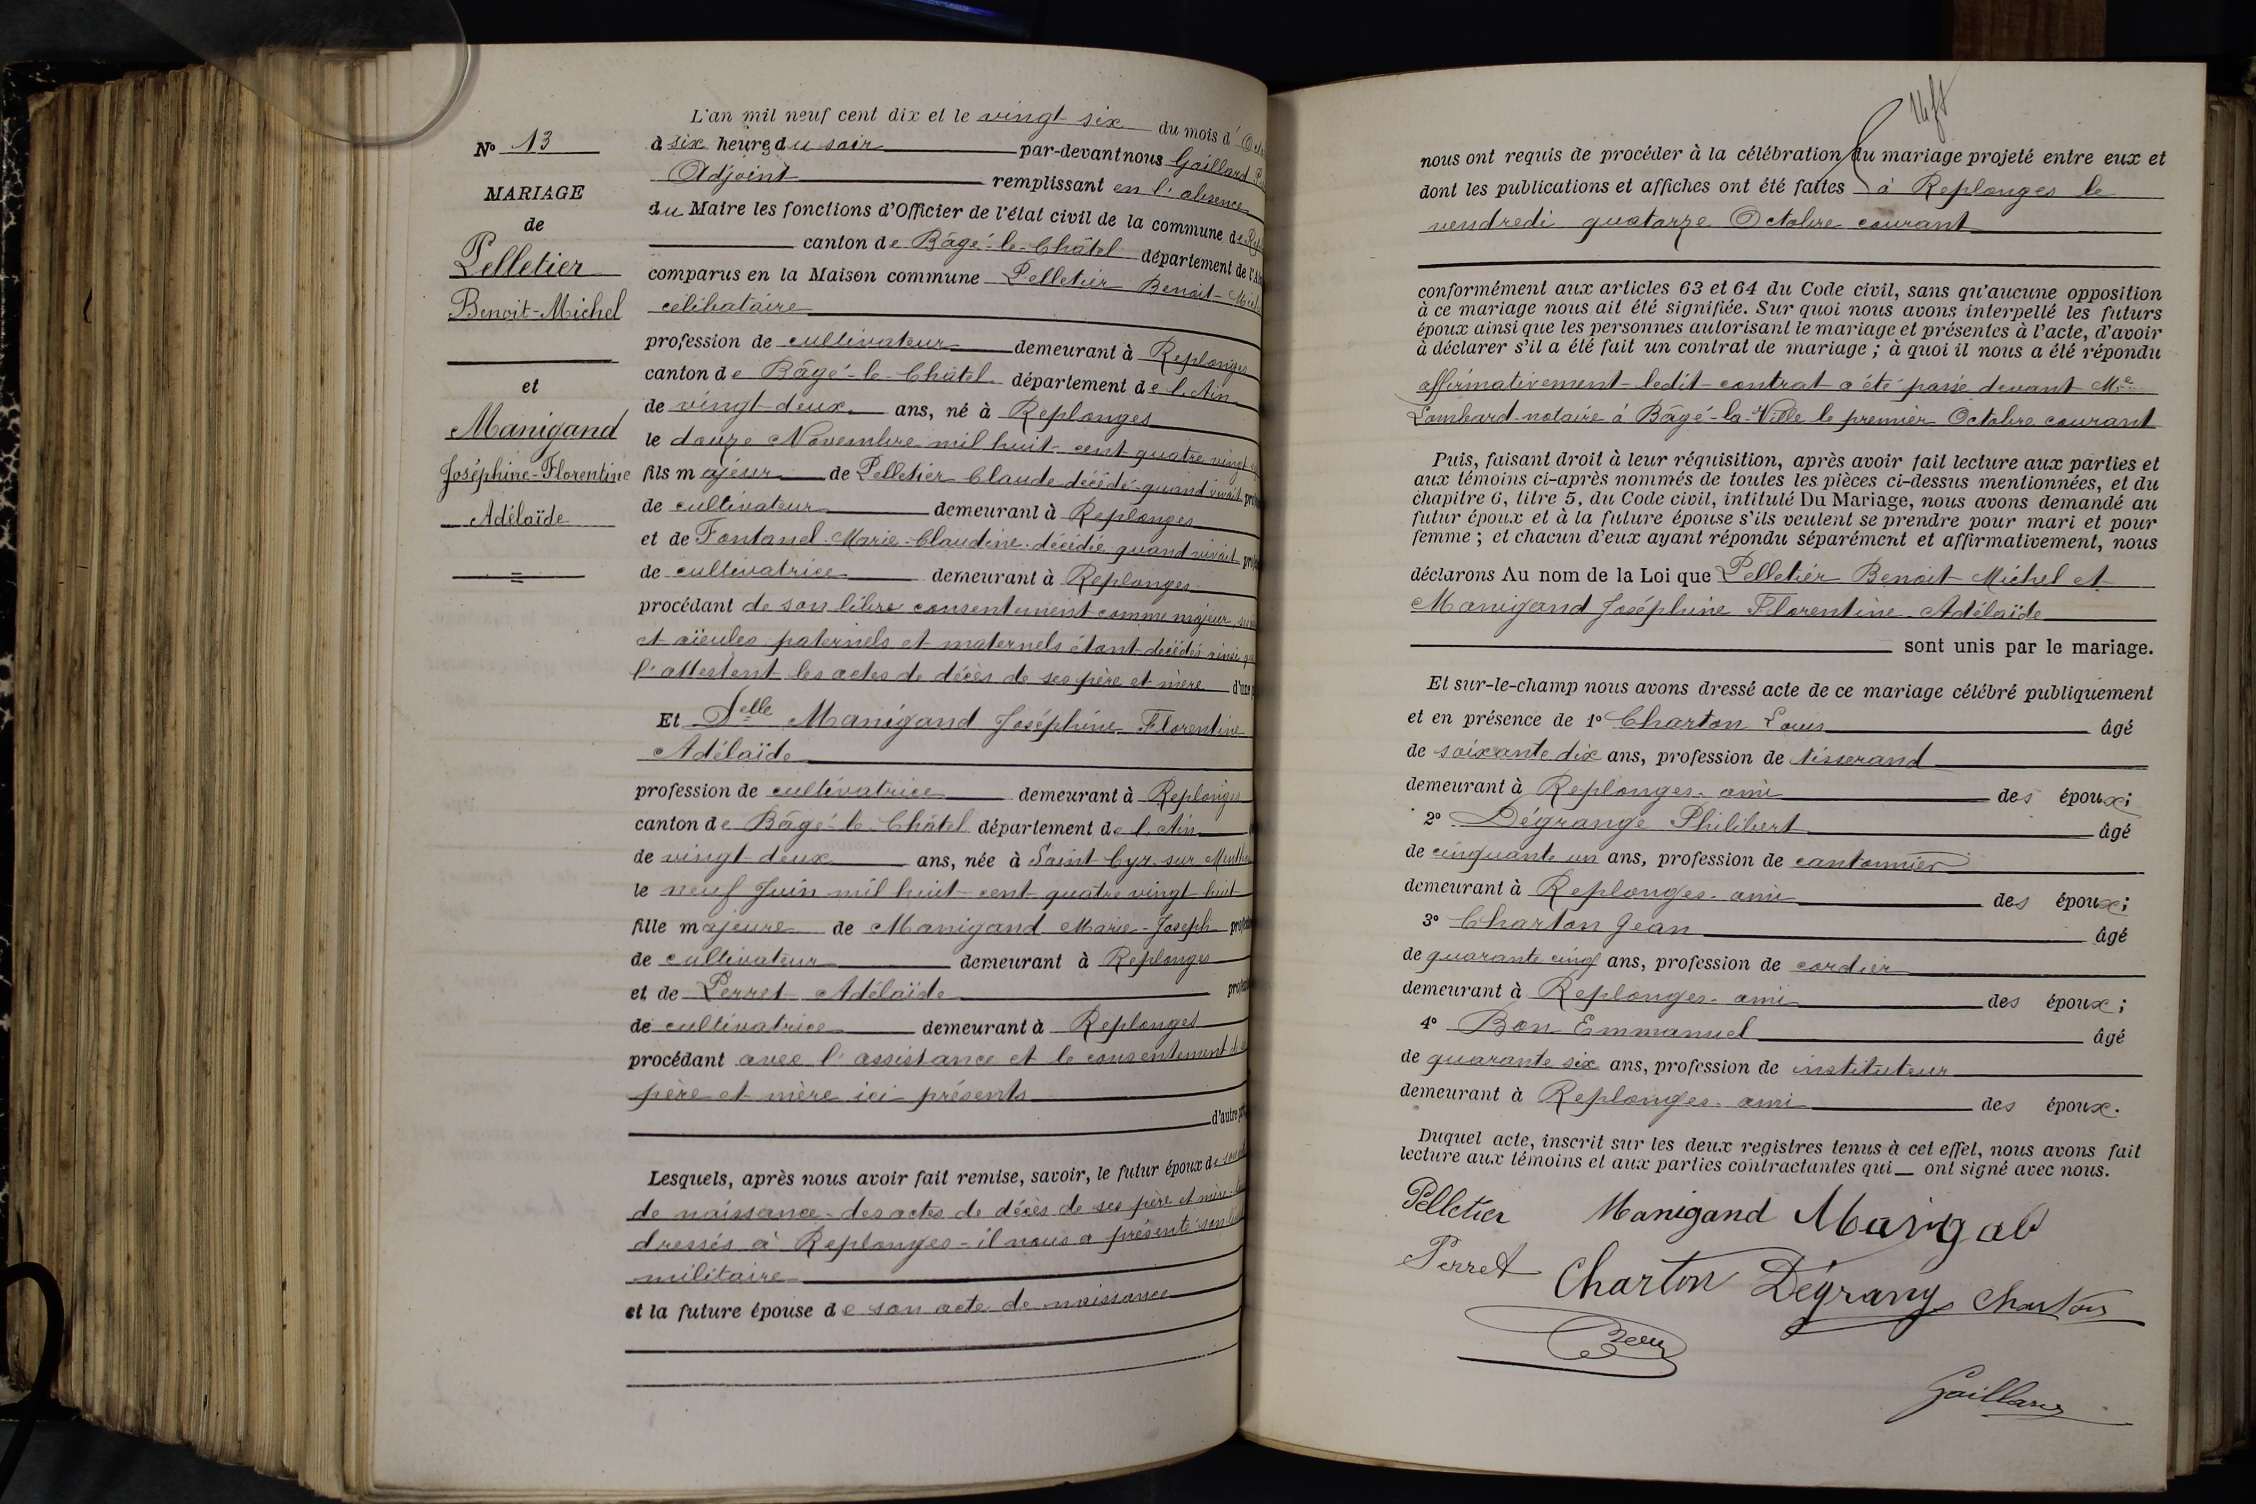 N° 13
MARIAGE
de
Pelletier
Benoit-Michel
et
Manigand
Joséphine-Florentine
Adélaïde
L'an mil neuf cent dix et le vingt six du mois d'
à six heures du soir par-devant nous Gaillard
Adjoint remplissant en l'absence
du Maire les fonctions d'Officier de l'état civil de la commune de
canton de Bâgé-le-Châtel département de l'Ain
comparus en la Maison commune Pelletier Benoit-
célibataire
profession de cultivateur demeurant à Replonges
canton de Bâgé-le-Châtel département de l'Ain
de vingt-deux ans, né à Replonges
le douze Novembre mil huit cent quatre vingt
fils majeur de Pelletier Claude décédé quand vivait
de cultivateur demeurant à Replonges
et de Fontanel Marie-Claudine décédée quand vivait
de cultivatrice demeurant à Replonges
procédant de son libre consentement comme majeur,
et aïeules paternels et maternels étant décédés ainsi que
l'attestent les actes de décès de ses père et mère d'une
Et Delle Manigand Joséphine Florentine
Adélaïde
profession de cultivatrice demeurant à Replonges
canton de Bâgé-le-Châtel département de l'Ain
de vingt-deux ans, née à Saint Cyr sur Menthon
le neuf Juin mil huit cent quatre vingt huit
fille majeure de Manigand Marie-Joseph
de cultivateur demeurant à Replonges
et de Perret Adélaïde
de cultivatrice demeurant à Replonges
procédant avec l'assistance et le consentement de
père et mère ici présents
d'autre part
Lesquels, après nous avoir fait remise, savoir, le futur époux de son
de naissance - des actes de décès de ses père et mère
dressés à Replonges - il nous a présenté son
militaire
et la future épouse de son acte de naissance
nous ont requis de procéder à la célébration du mariage projeté entre eux et
dont les publications et affiches ont été faites à Replonges le
vendredi quatorze Octobre courant
conformément aux articles 63 et 64 du Code civil, sans qu'aucune opposition
à ce mariage nous ait été signifiée. Sur quoi nous avons interpellé les futurs
époux ainsi que les personnes autorisant le mariage et présentes à l'acte, d'avoir
à déclarer s'il a été fait un contrat de mariage ; à quoi il nous a été répondu
affirmativement - ledit contrat a été passé devant Me
Lombard notaire à Bâgé-la-Ville le premier Octobre courant
Puis, faisant droit à leur réquisition, après avoir fait lecture aux parties et
aux témoins ci-après nommés de toutes les pièces ci-dessus mentionnées, et du
chapitre 6, titre 5, du Code civil, intitulé Du Mariage, nous avons demandé au
futur époux et à la future épouse s'ils veulent se prendre pour mari et pour
femme ; et chacun d'eux ayant répondu séparément et affirmativement, nous
déclarons Au nom de la Loi que Pelletier Benoit Michel et
Manigand Joséphine Florentine Adélaïde
sont unis par le mariage.
Et sur-le-champ nous avons dressé acte de ce mariage célébré publiquement
et en présence de 1° Charton Louis âgé
de soixante dix ans, profession de tisserand
demeurant à Replonges - ami des époux ;
2° Dégrange Philibert âgé
de cinquante un ans, profession de cantonnier
demeurant à Replonges - ami des époux ;
3° Charton Jean âgé
de quarante cinq ans, profession de cordier
demeurant à Replonges - ami des époux ;
4° Bon Emmanuel âgé
de quarante six ans, profession de instituteur
demeurant à Replonges - ami des époux.
Duquel acte, inscrit sur les deux registres tenus à cet effet, nous avons fait
lecture aux témoins et aux parties contractantes qui ont signé avec nous.
Pelletier Manigand
Perret Charton Dégrange Charton
Gaillard